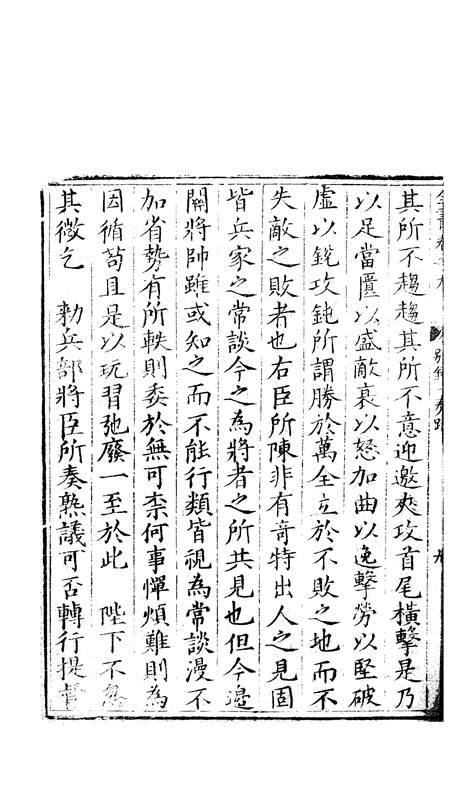 其所不趨趨其所不意迎邀夾攻首尾橫擊是乃
以足當匱以盛敵衰以怒加曲以逸擊勞以堅破
虛以銳攻鈍所謂勝於萬全立於不敗之地而不
失敵之敗者也右臣所陳非有竒特出人之見固
皆兵家之常談今之為將者之所共見也但今邊
關將帥雖或知之而不能行類皆視為常談漫不
加省勢有所軼則委於無可柰何事憚煩難則為
因循苟且是以玩習弛廢一至於此 陛下不忽
其微乞 勑兵部將臣所奏熟議可否轉行提督